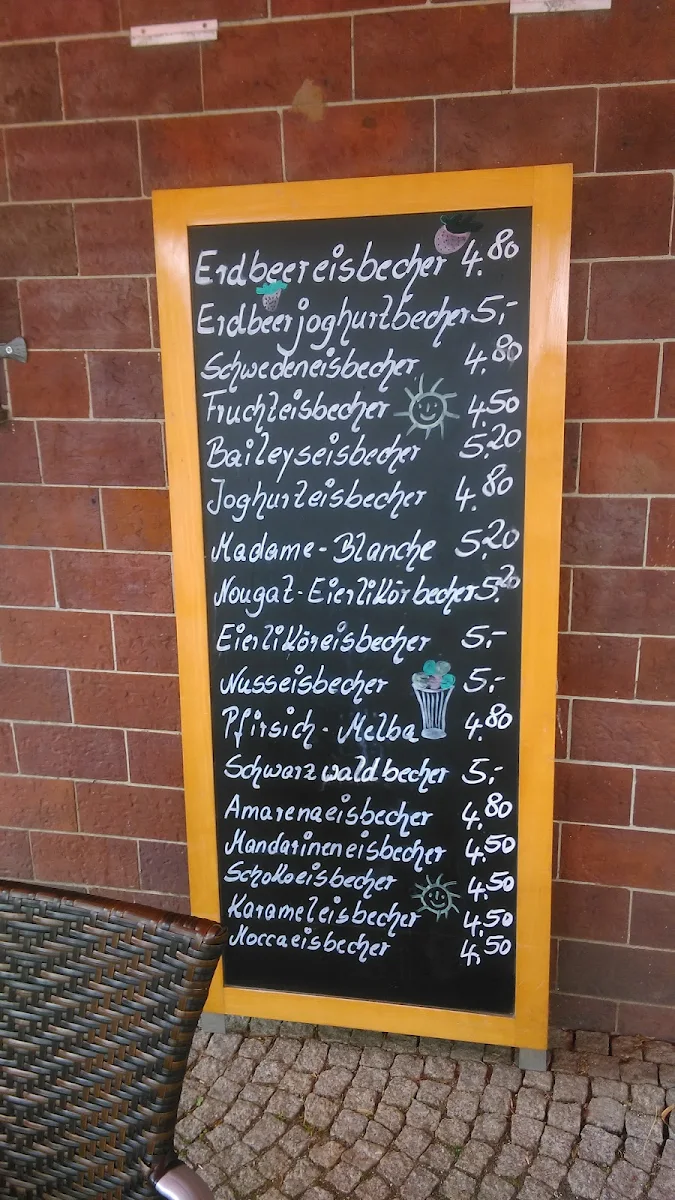 Erdbeereisbecher 4.80
Erdbeerjoghurtbecher 5,-
Schwedeneisbecher 4.80
Fruchteisbecher 4.50
Baileyseisbecher 5.20
Joghurteisbecher 4.80
Madame-Blanche 5.20
Nougat-Eierlikörbecher 5.20
Eierliköreisbecher 5,-
Nusseisbecher 5,-
Pfirsich-Melba 4.80
Schwarzwaldbecher 5,-
Amarenaeisbecher 4.80
Mandarineneisbecher 4.50
Schokoeisbecher 4.50
Karameleisbecher 4.50
Moccaeisbecher 4.50